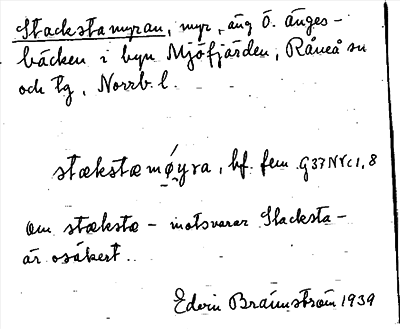 Stackstamyran, myr, äng ö. änges-
bäcken i byn Mjöfjärden, Råneå sn
och tg, Norrb. l.
stækstæmǿyra, bf. fem. G37NYc1,8
Om stækstæ - motsvarar Stacksta-
är osäkert..
Edvin Brännström 1939